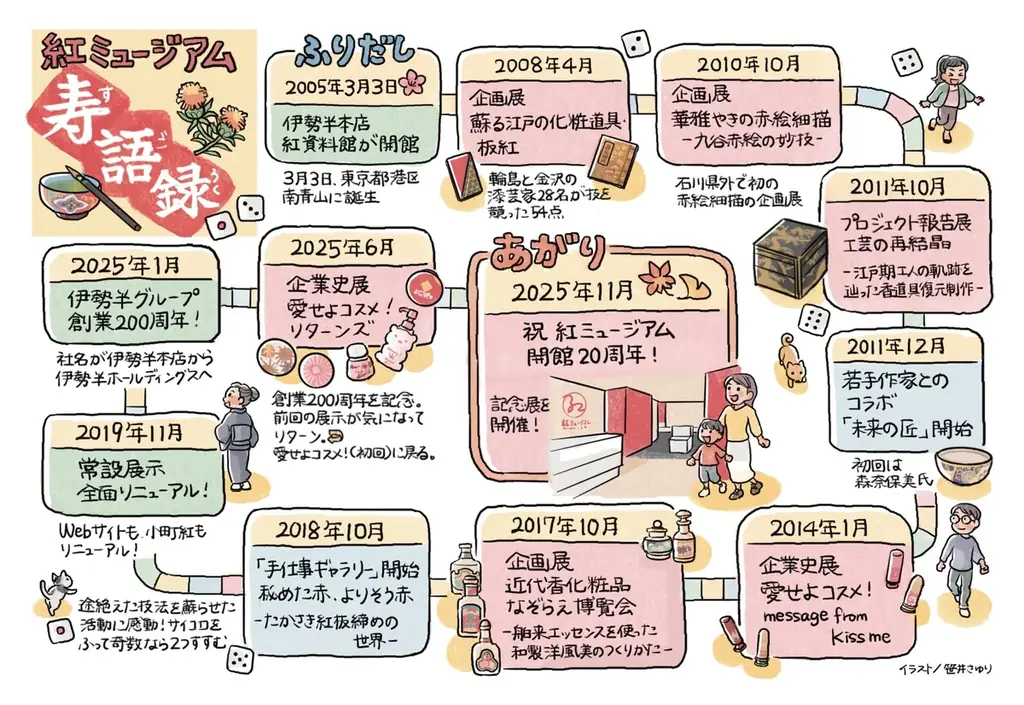 紅ミュージアム
寿語録
すごろく
ふりだし
2005年3月3日
伊勢半本店
紅資料館が開館
3月3日、東京都港区
南青山に誕生
2008年4月
企画展
蘇る江戸の化粧道具・
板紅
輪島と金沢の
漆芸家28名が技を
競った54点
2010年10月
企画展
華雅やきの赤絵細描
-九谷赤絵の妙技-
石川県外で初の
赤絵細描の企画展
2011年10月
プロジェクト報告展
工芸の再結晶
-江戸期工人の軌跡を
辿った香道具復元制作-
2011年12月
若手作家との
コラボ
「未来の匠」開始
初回は
森奈保美氏
2014年1月
企業史展
愛せよコスメ!
message from
Kiss me
2017年10月
企画展
近代香化粧品
なぞらえ博覧会
-舶来エッセンスを使った
和製洋風美のつくりかた-
2018年10月
「手仕事ギャラリー」開始
秘めた赤、よりそう赤
-たかさき紅板締めの
世界-
途絶えた技法を蘇らせた
活動に感動!サイコロを
ふって奇数なら2つすすむ
2019年11月
常設展示
全面リニューアル!
Webサイトも、小町紅も
リニューアル!
2025年1月
伊勢半グループ
創業200周年!
社名が伊勢半本店から
伊勢半ホールディングスへ
2025年6月
企業史展
愛せよコスメ!
リターンズ
創業200周年を記念。
前回の展示が気になって
リターン。
愛せよコスメ!(初回)に戻る。
あがり
2025年11月
祝 紅ミュージアム
開館20周年!
記念展を
開催!
紅ミュージアム
イラスト/笹井さゆり